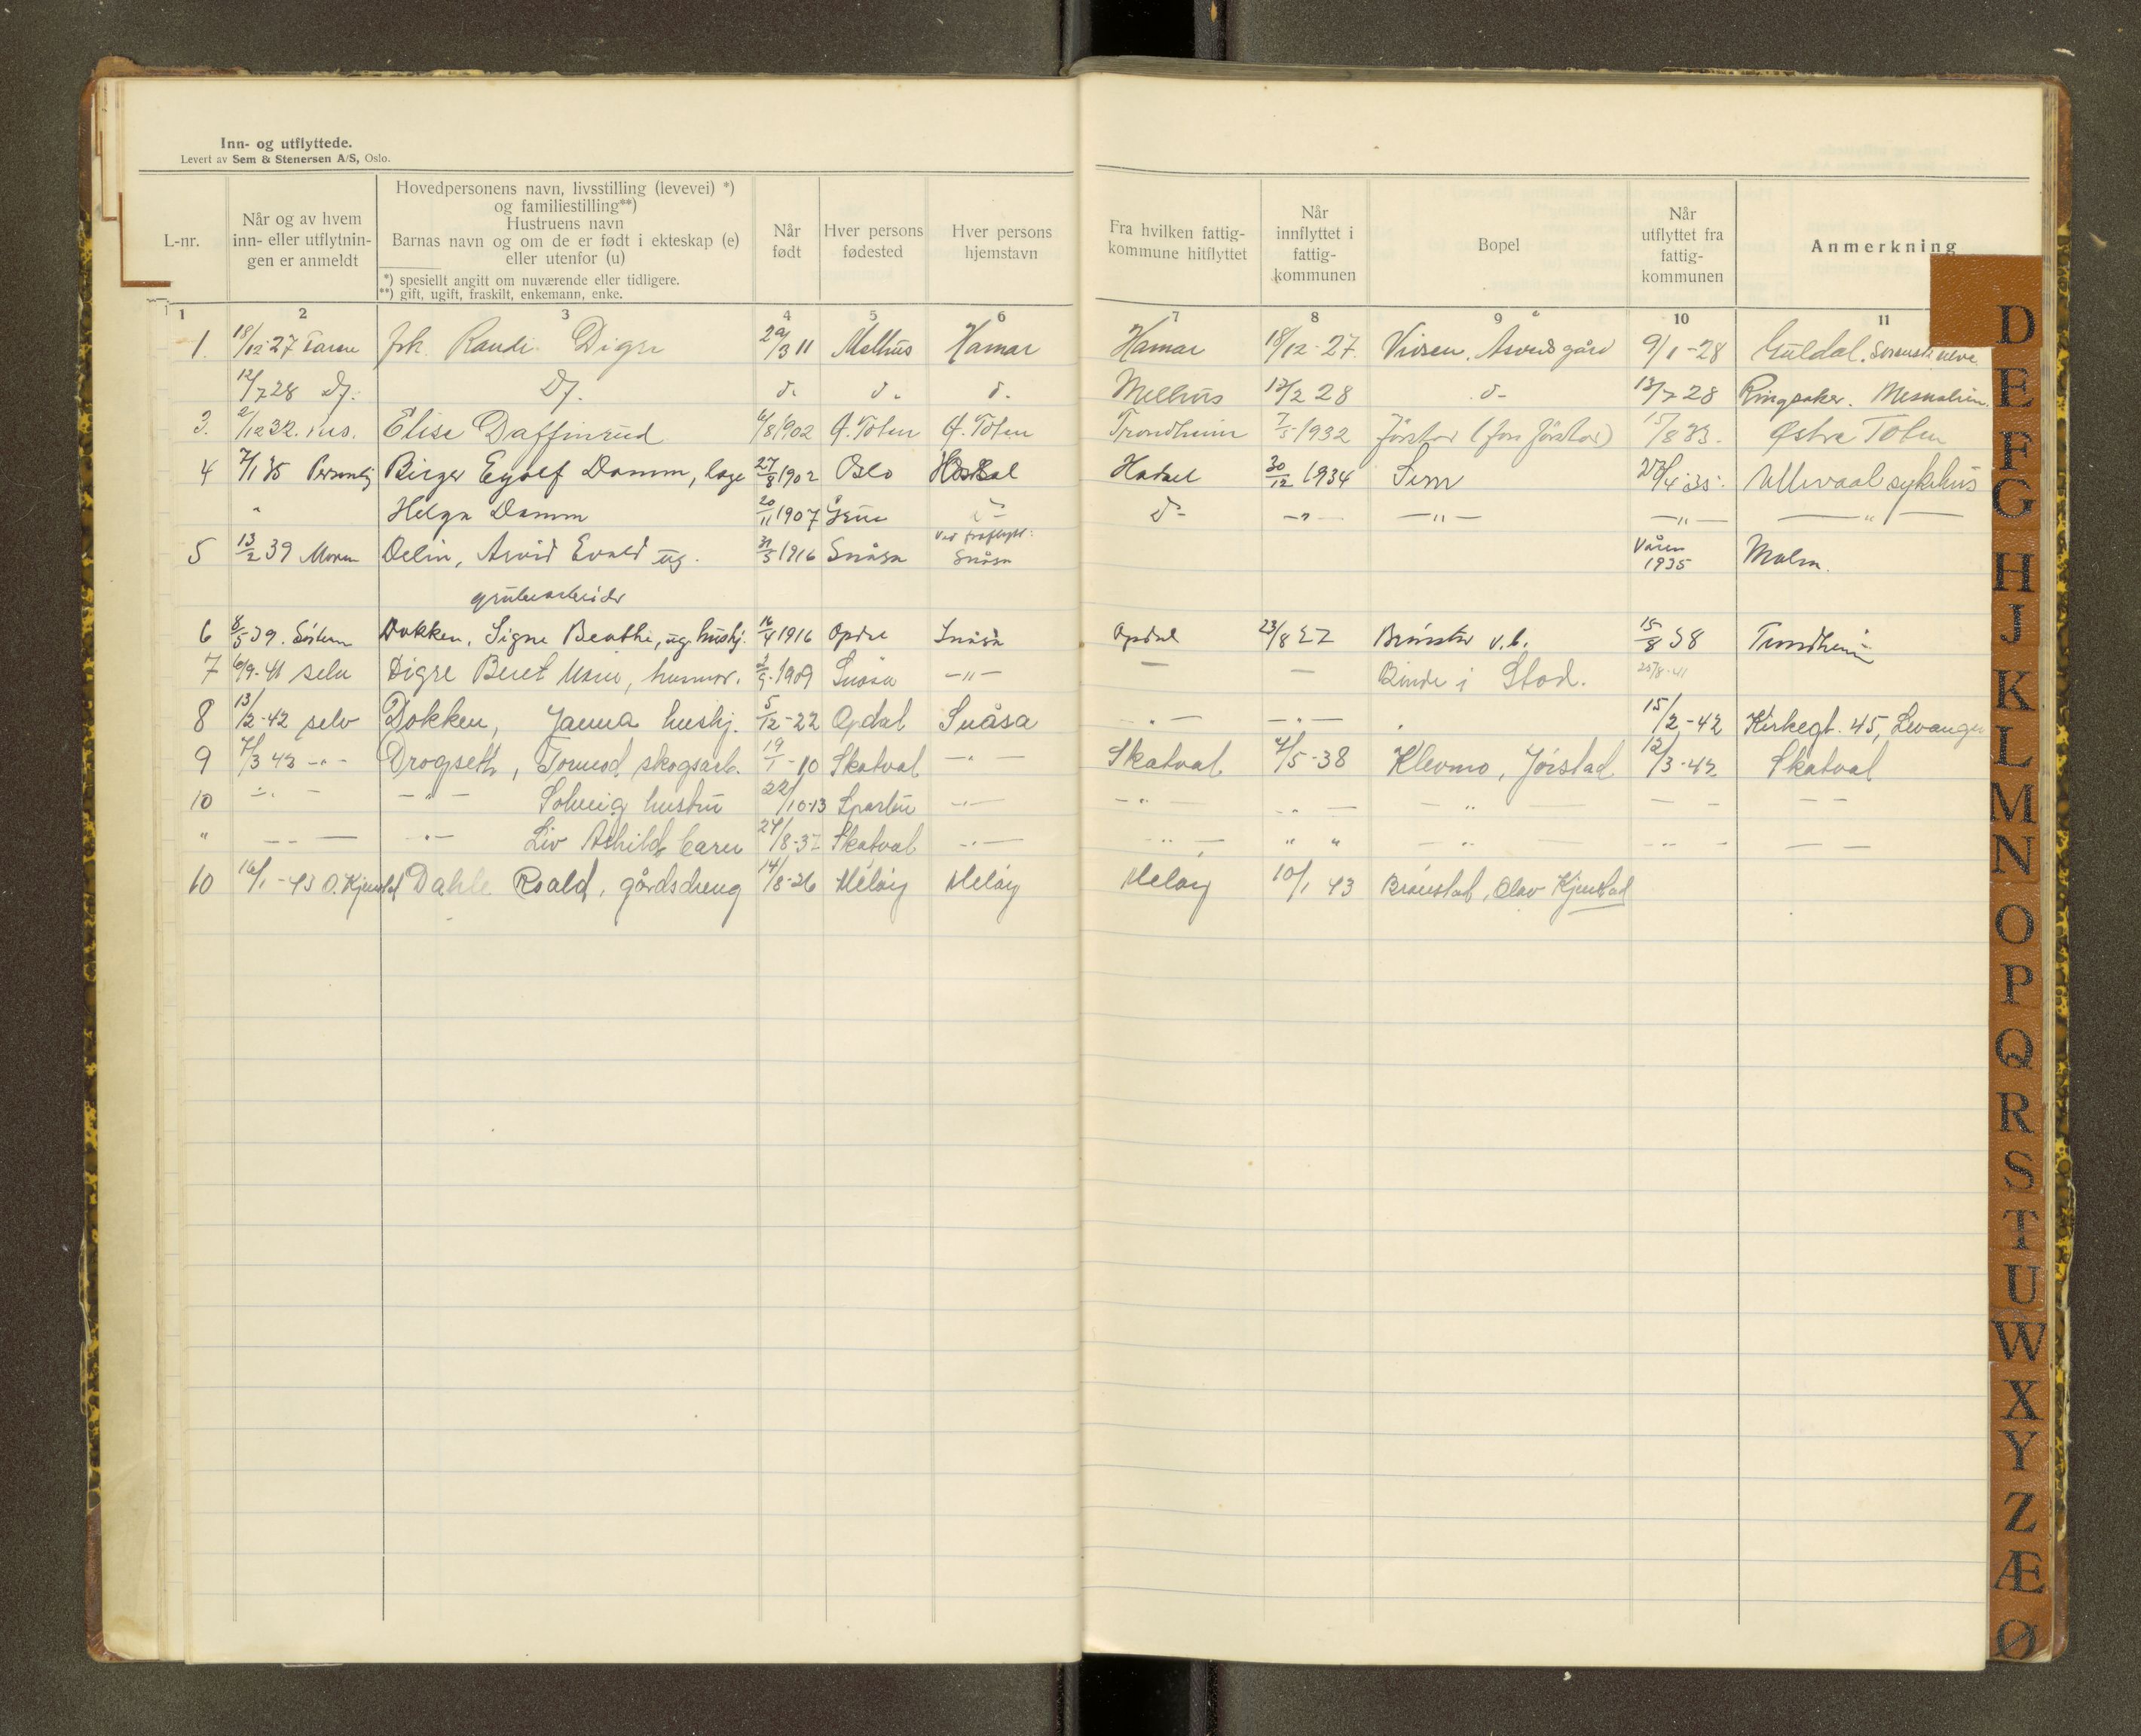 Inn- og utflyttede.
Levert av Sem & Stenersen A/S, Oslo.
L-nr.
Når og av hvem
inn- eller utflytnin-
gen er anmeldt
Hovedpersonens navn, livsstilling (levevei) *)
og familiestilling**)
Hustruens navn
Barnas navn og om de er født i ekteskap (e)
eller utenfor (u)
*) spesiellt angitt om nuværende eller tidligere.
**) gift, ugift, fraskilt, enkemann, enke.
Når
født
Hver persons
fødested
Hver persons
hjemstavn
Fra hvilken fattig-
kommune hitflyttet
Når
innflyttet i
fattig-
kommunen
Bopel
Når
utflyttet fra
fattig-
kommunen
Anmerkning
1 2 3 4 5 6 7 8 9 10 11
1. 18/12 27 frk. Randi Digre 29/3 11 Melhus Hamar Hamar 18/12-27. Vinsen. 9/1-28 Guldal.
12/7 28 Dj. Dj. d. d. d. Melhus 12/2 28 d- 13/7 28 Ringsaker. Mesnalien.
3. 2/12 32. Elise Daffinrud 6/8 1902 Ø. Toten Ø. Toten Trondheim 7/5 1932 Jørstad (Jon Jørstad) 15/8 33. Østre Toten
4 7/1 35 Personlig Birger Eyolf Damm, læge 27/8 1902 Oslo Hadsel 30/12 1934 Sem 27/4 35. Ullevaal sykehus
" Helga Damm 20/11 1907 d- d- -"- -"- -"- -"-
5 13/2 39 Moren Delin, Arvid Evald ug. 31/5 1916 Snåsa Ved fraflytt: Snåsa Våren 1935 Malm.
grubearbeider
6 8/5 39. Søsteren Dokken, Signe Beathe, ug. hushj. 16/4 1916 Opdal Snåsa Opdal 23/8 27 Brønstad v.b. 15/8 38 Trondheim
7 6/9-41 selv Digre Beret Marie, husmor. 2/9-1909 Snåsa -"- - - Binde i Stod. 25/8-41
8 13/2-42 selv Dokken, Janna hushj. 5/12-22 Opdal Snåsa -"- -"- 15/2-42 Kirkegt. 45, Levanger
9 7/3 42 -"- Drogseth, Tormod, skogsarb. 19/1-10 Skatval -"- Skatval 4/5-38 Klevmo, Jørstad 12/3-42 Skatval
10 -"- -"- Solveig hustru 22/10-13 Sparbu -"- -"- -"- -"- - - - -
" - - -"- Liv Åshild barn 24/8-37 Skatval -"- -"- " " -"- -"- - -
10 16/1-43 O. Kjenstad Dahle Roald, gårdsdreng 14/8-26 Meløy Meløy Meløy 10/1 43 Brønstad, Olav Kjenstad
D
E
F
G
H
J
K
L
M
N
O
P
Q
R
S
T
U
W
X
Y
Z
Æ
Ø